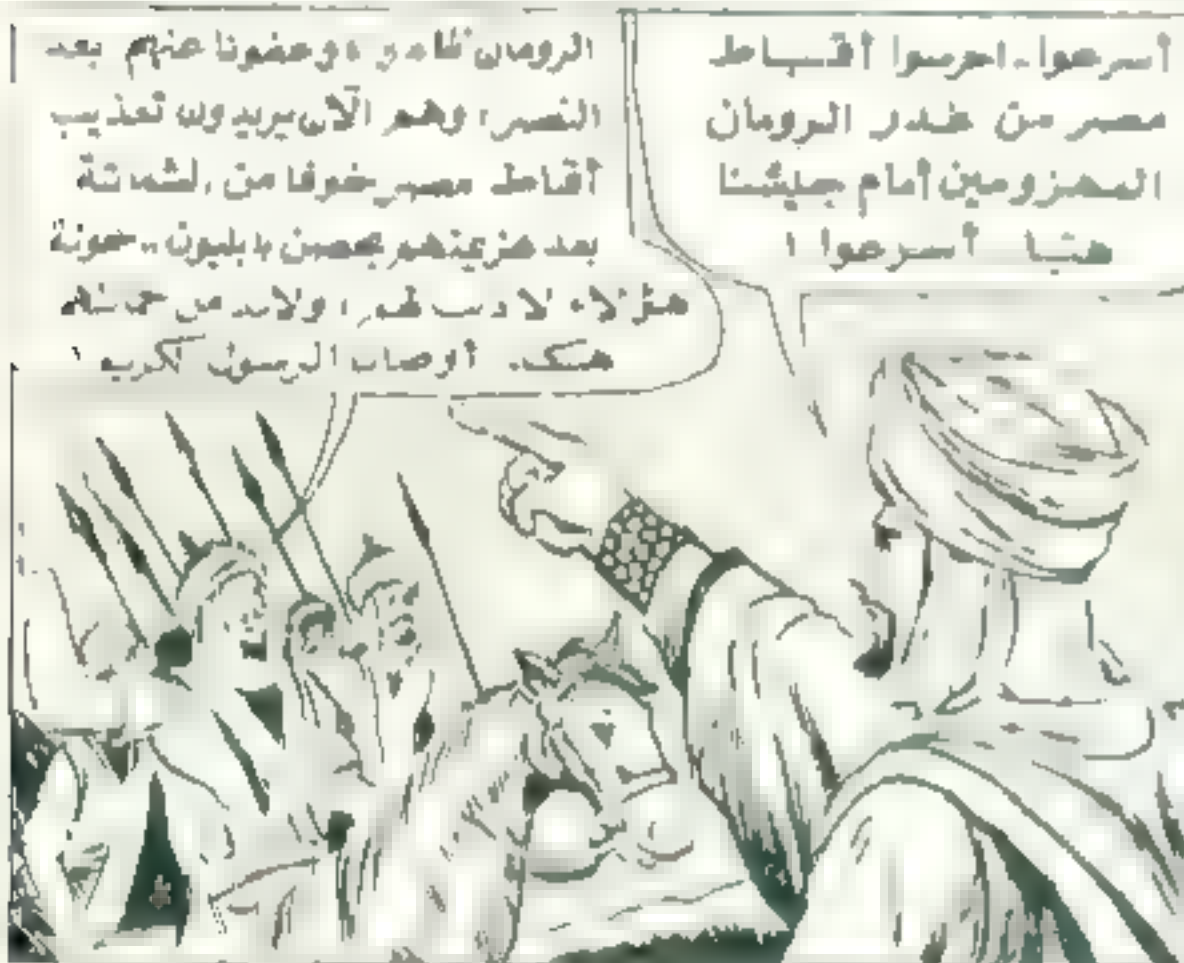 أسرعوا.. احرسوا أقباط
مصر من غدر الرومان
المهزومين أمام جيشنا
هيا أسرعوا !
الرومان وعفونا عنهم بعد
النصر، وهم الآن يريدون تعذيب
أقباط مصر خوفا من الشماتة
بعد هزيمتهم بحصن بابليون..
هؤلاء لا لهم، ولابد من
أوصانا الرسول الكريم